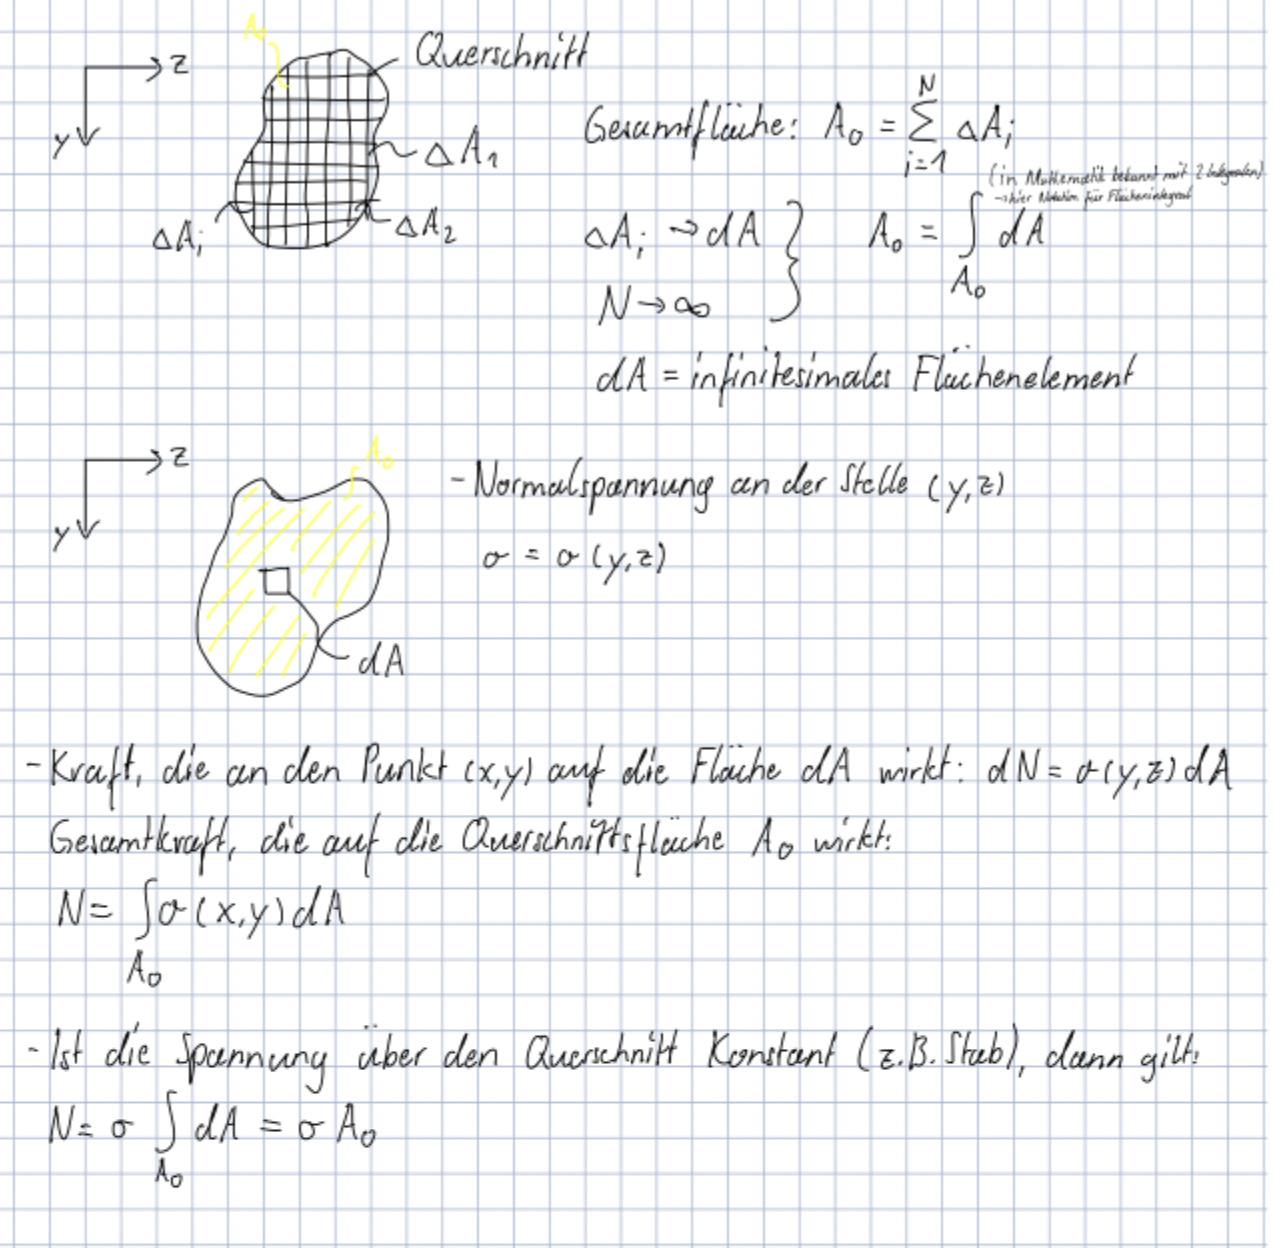 A₀
Querschnitt
z
y
ΔA₁
ΔA₂
ΔAᵢ
Gesamtfläche: A₀ = ∑ᵢ₌₁ᴺ ΔAᵢ
(in Mathematik bekannt mit 2 Integralen)
→hier Notation für Flächenintegral
ΔAᵢ → dA } A₀ = ∫_A₀ dA
N → ∞
dA = infinitesimales Flächenelement
z
y
A₀
dA
- Normalspannung an der Stelle (y,z)
σ = σ (y,z)
- Kraft, die an den Punkt (x,y) auf die Fläche dA wirkt: dN = σ(y,z) dA
Gesamtkraft, die auf die Querschnittsfläche A₀ wirkt:
N = ∫_A₀ σ(x,y) dA
- Ist die Spannung über den Querschnitt Konstant (z.B. Stab), dann gilt:
N = σ ∫_A₀ dA = σ A₀